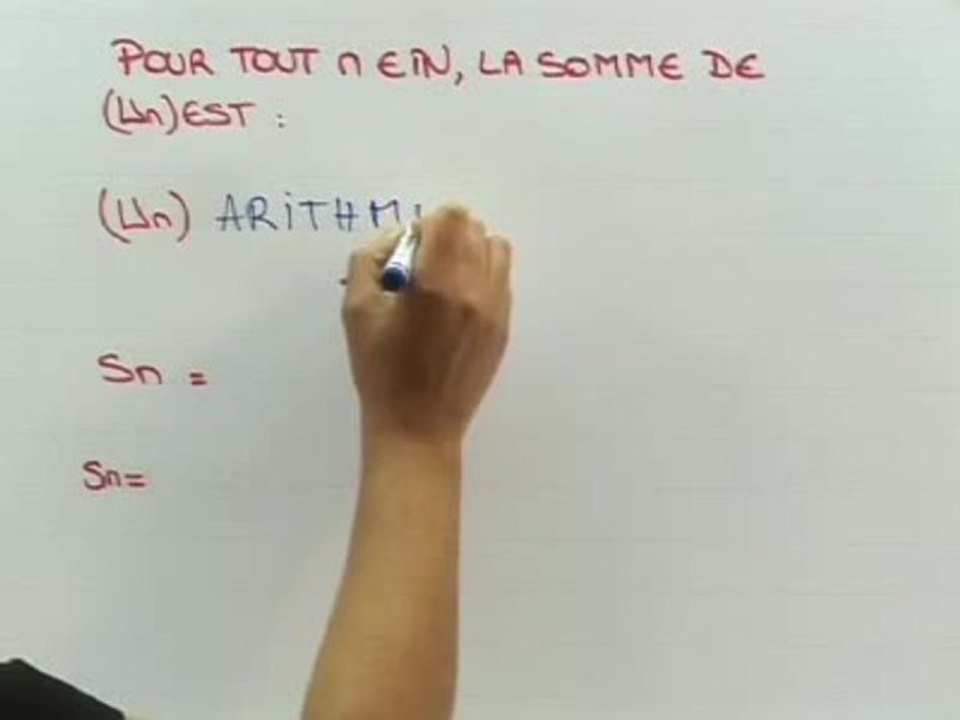 POUR TOUT n ∈ ℕ, LA SOMME DE
(Un) EST :
(Un) ARITHM
Sn =
Sn =